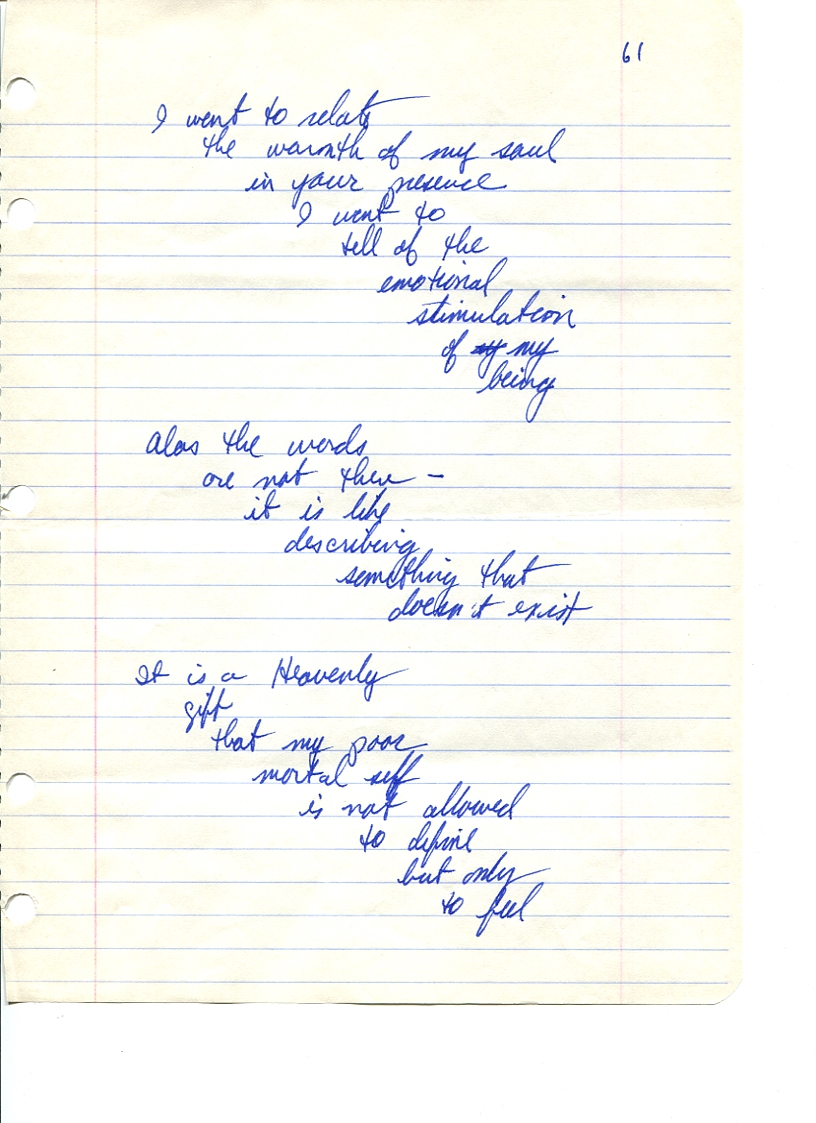 61
I want to relate
the warmth of my soul
in your presence
I want to
tell of the
emotional
stimulation
of my
being
Alas the words
are not there –
it is like
describing
something that
doesn't exist
It is a Heavenly
gift
that my poor
mortal self
is not allowed
to define
but only
to feel